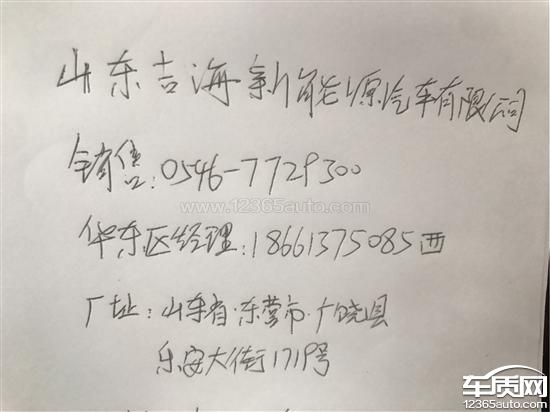 山东吉海新能源汽车有限公司
销售:0546-7729300
www.12365auto.com
华东区经理:18661375085西
厂址:山东省·东营市·广饶县
乐安大街1719号
车质网
12365auto.com